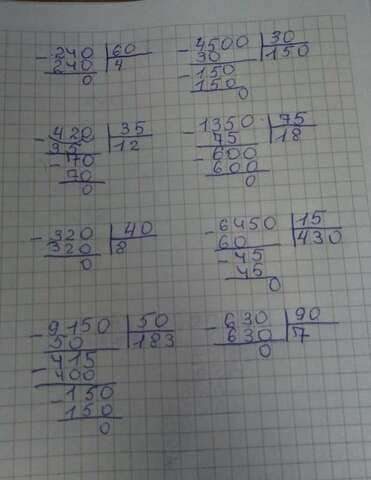 - 240 | 60
240 | 4
0
- 4500 | 30
30 | 150
- 150
150
0
- 420 | 35
35 | 12
- 70
70
0
- 1350 | 75
75 | 18
- 600
600
0
- 320 | 40
320 | 8
0
- 6450 | 15
60 | 430
- 45
45
0
- 9150 | 50
50 | 183
- 415
400
- 150
150
0
- 630 | 90
630 | 7
0